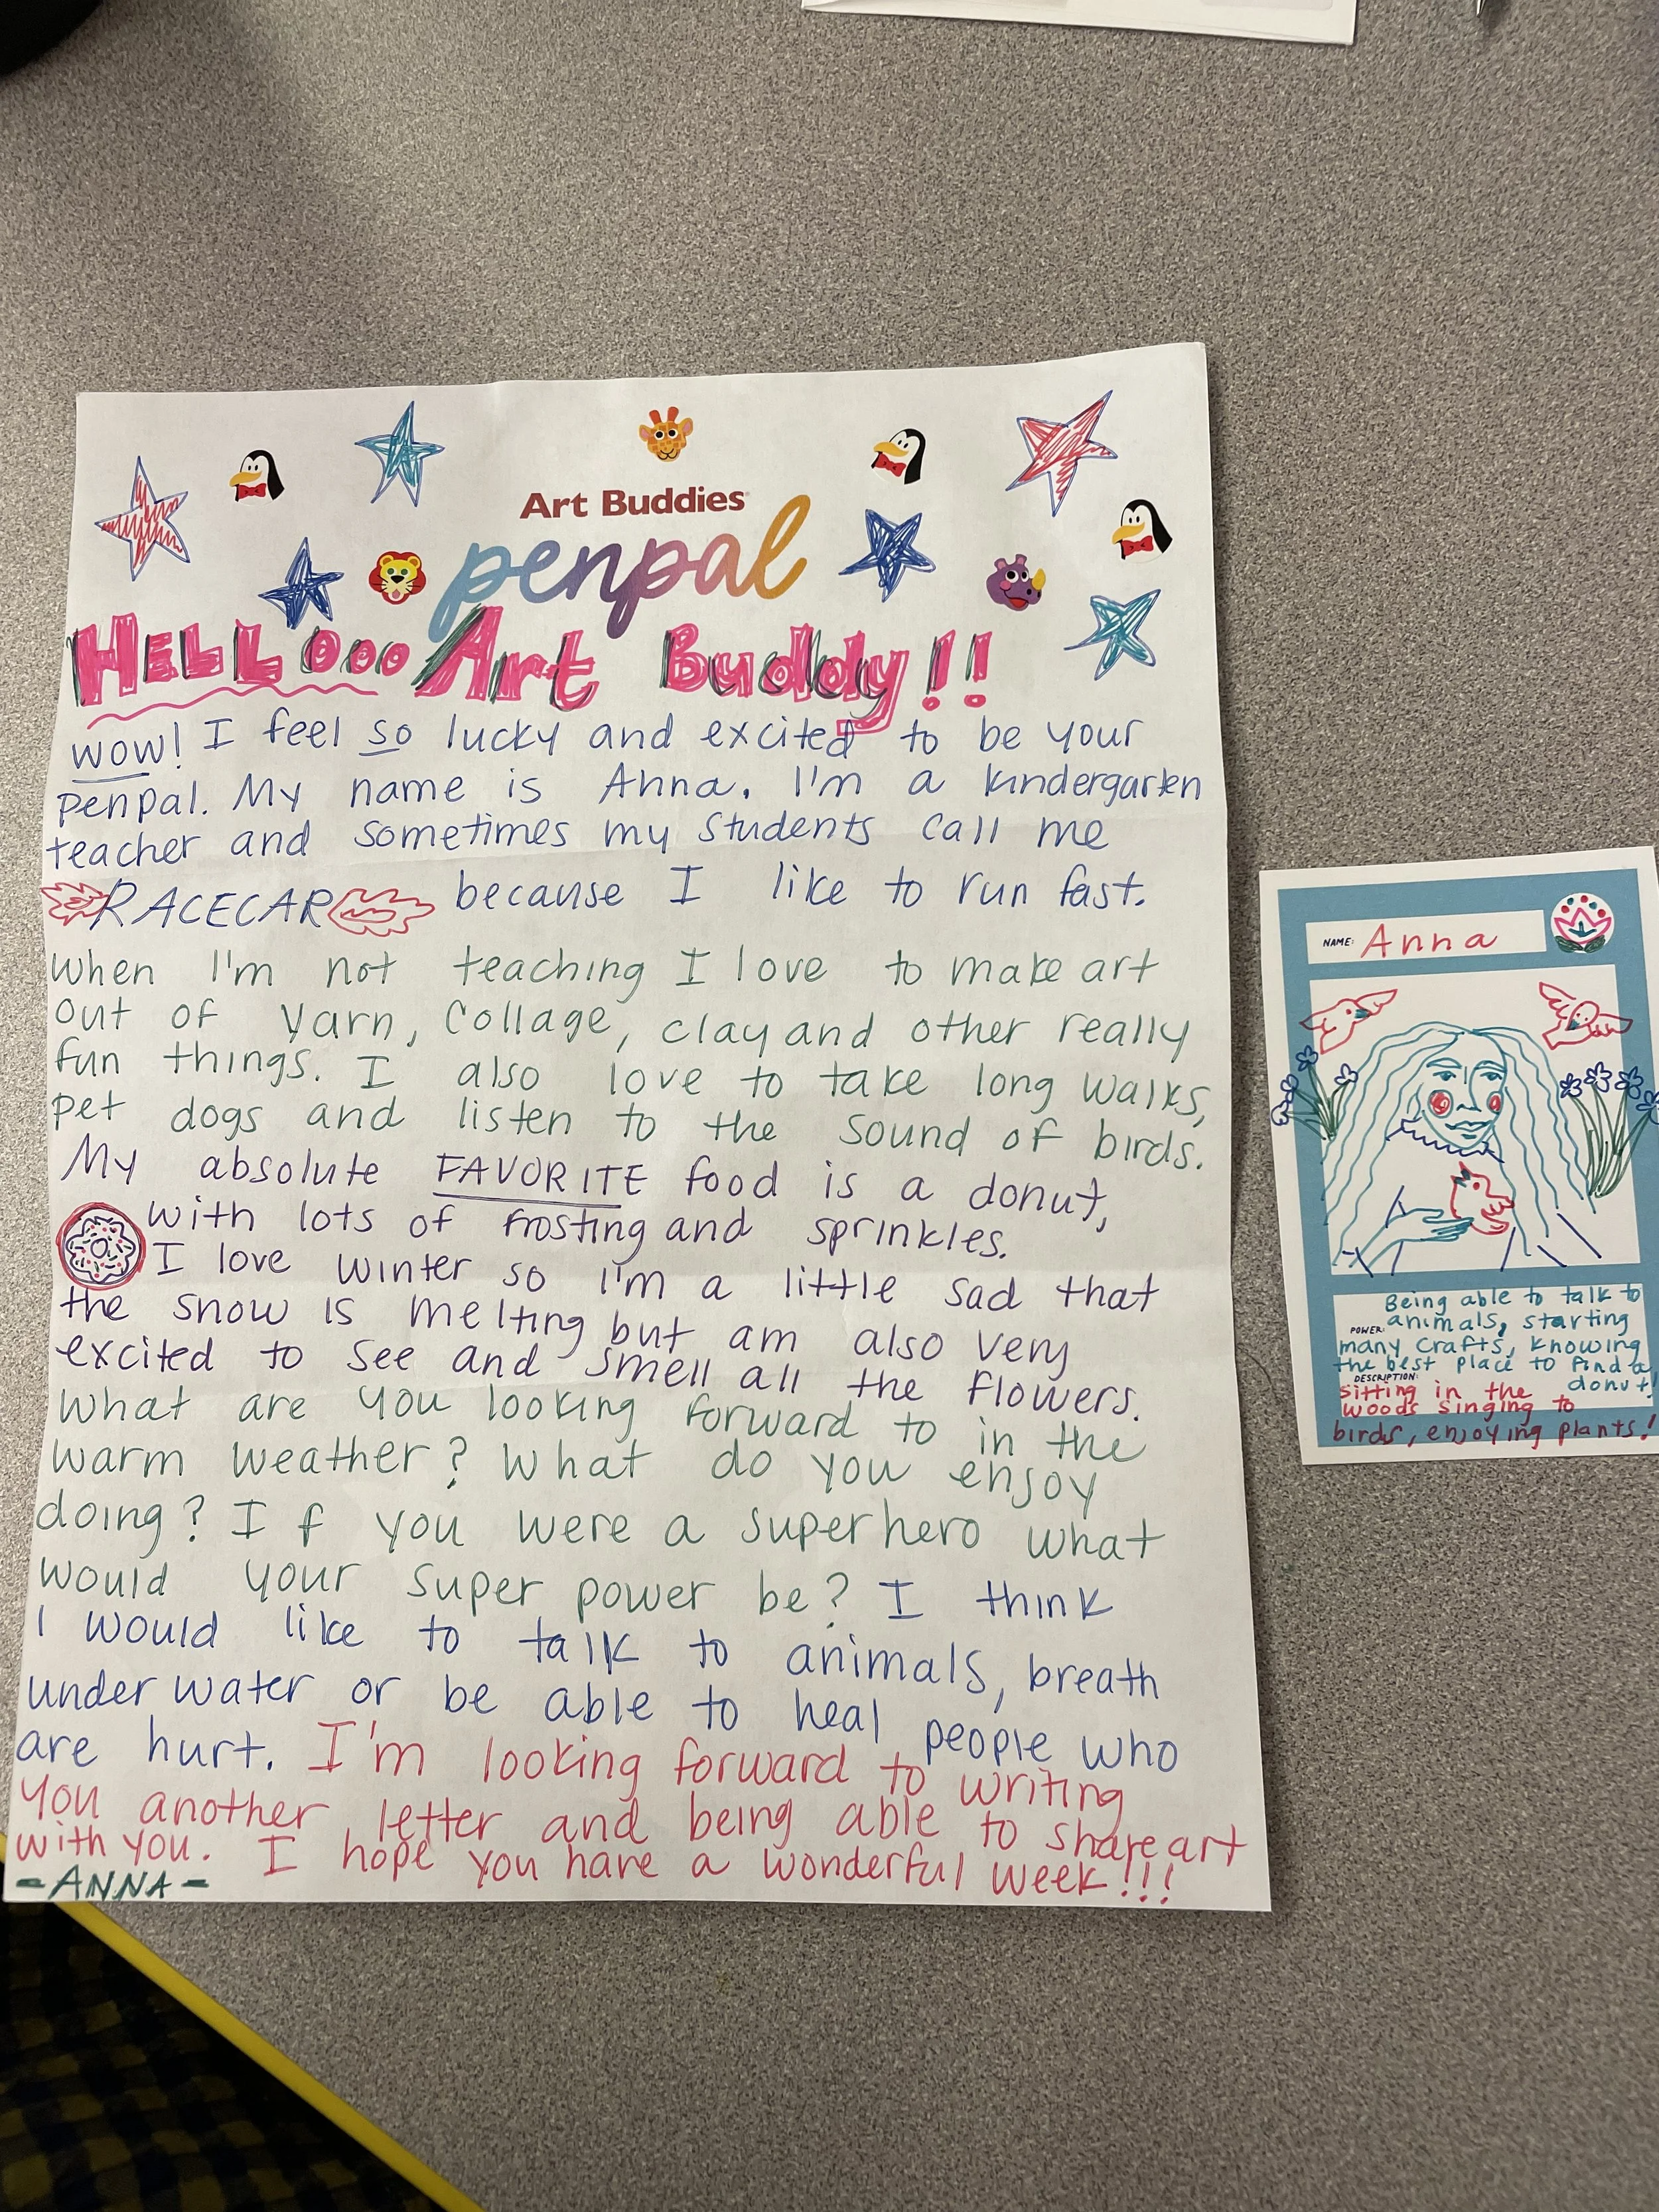 Art Buddies
penpal
HELLOOO Art Buddy!!
wow! I feel so lucky and excited to be your
penpal. My name is Anna. I'm a kindergarten
teacher and sometimes my students call me
RACECAR because I like to run fast.
When I'm not teaching I love to make art
out of yarn, collage, clay and other really
fun things. I also love to take long walks,
pet dogs and listen to the sound of birds.
My absolute FAVORITE food is a donut,
with lots of frosting and sprinkles.
I love winter so I'm a little sad that
the snow is melting but am also very
excited to see and smell all the flowers.
What are you looking forward to in the
warm weather? What do you enjoy
doing? If you were a superhero what
would your super power be? I think
I would like to talk to animals, breath
under water or be able to heal people who
are hurt. I'm looking forward to writing
you another letter and being able to share art
with you. I hope you have a wonderful week!!!
-ANNA-
NAME: Anna
Being able to talk to
POWER: animals, starting
many crafts, knowing
the best place to find a
DESCRIPTION: donut!
sitting in the
woods singing to
birds, enjoying plants!